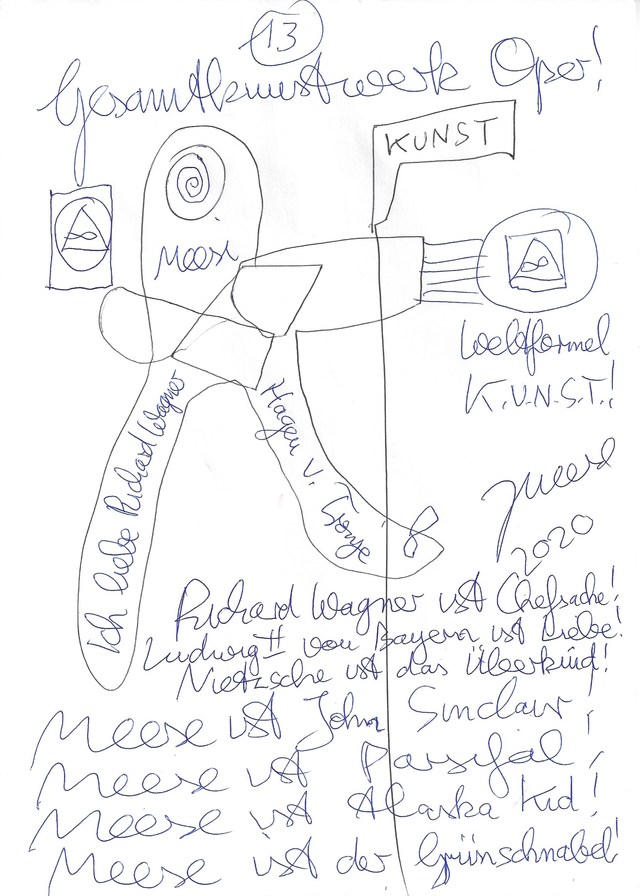 13
Gesamtkunstwerk Oper!
KUNST
Meese
Weltformel
K.U.N.S.T.!
Ich liebe Richard Wagner
Hagen v. Tronje
JMeese
2020
Richard Wagner ist Chefsache!
Ludwig II von Bayern ist Liebe!
Nietzsche ist das Überkind!
Meese ist John Sinclair!
Meese ist Parsifal!
Meese ist Alaska Kid!
Meese ist der Grünschnabel!